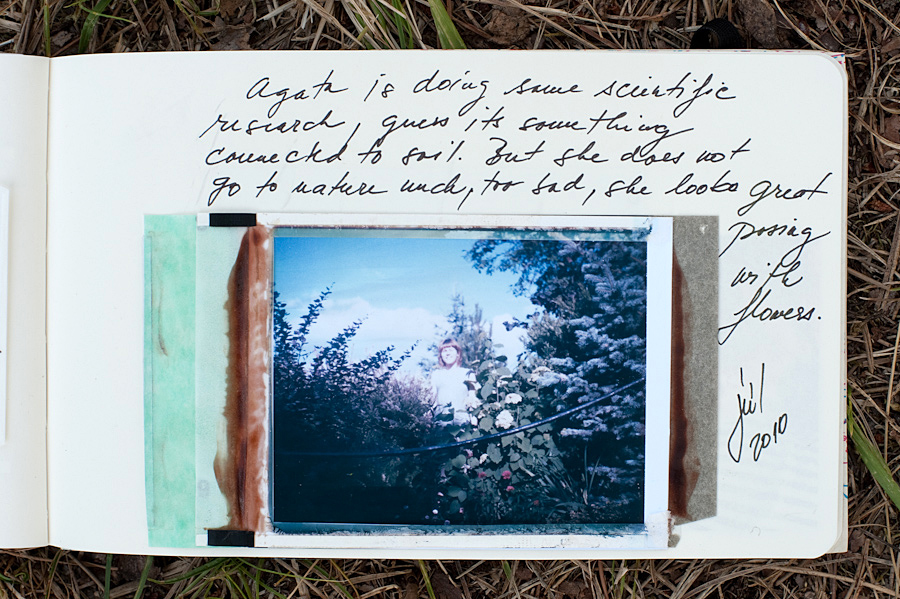 Agata is doing some scientific
research, guess its something
connected to soil. But she does not
go to nature much, too sad, she looks great
posing
with
flowers.
jūl
2010